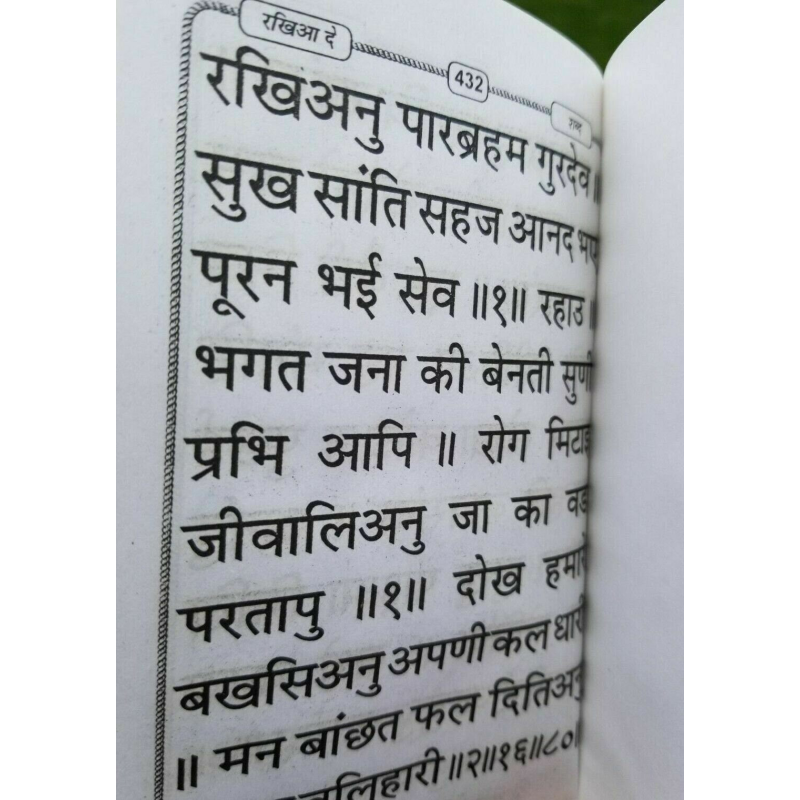 रखिआ दे
432
शब्द
रखिअनु पारब्रहम गुरदेव ॥
सुख सांति सहज आनद भए
पूरन भई सेव ॥१॥ रहाउ ॥
भगत जना की बेनती सुणी
प्रभि आपि ॥ रोग मिटाइ
जीवालिअनु जा का वड
परतापु ॥१॥ दोख हमारे
बखसिअनु अपणी कल धारी
॥ मन बांछत फल दितिअनु
बलिहारी ॥२॥१६॥८०॥